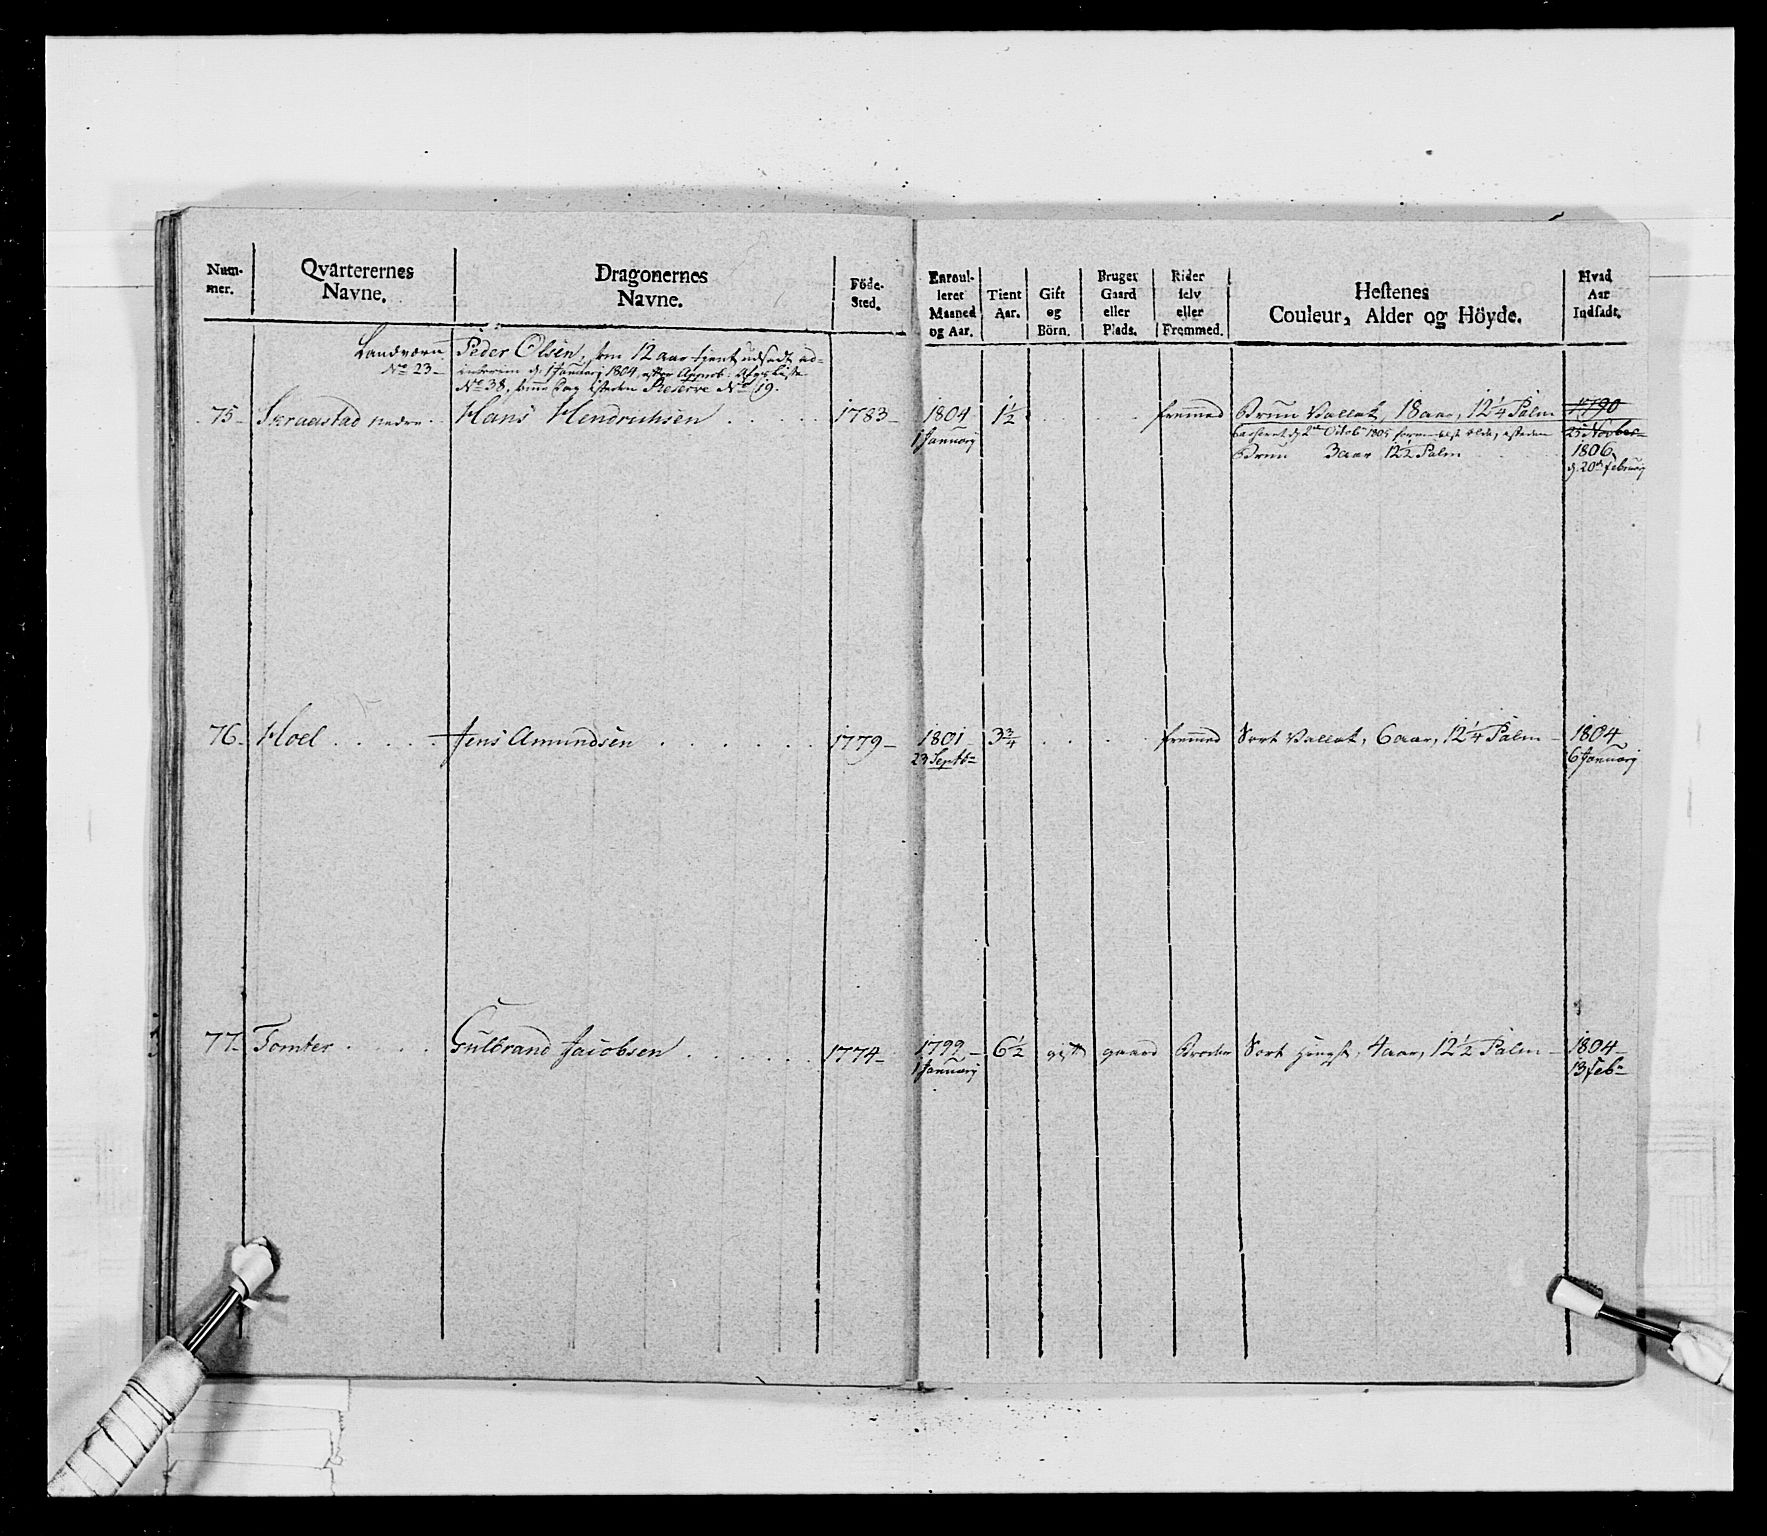 Num-
mer.
Qvarterernes
Navne.
Dragonernes
Navne.
Föde-
Sted.
Enroul-
leret
Maaned
og Aar.
Tient
Aar.
Gift
og
Börn.
Bruger
Gaard
eller
Plads.
Rider
selv
eller
Fremmed.
Hestenes
Couleur, Alder og Höyde.
Hvad
Aar
Indsadt.
Landværn
No 23-
Peder Olsen, som 12 aar tjent udsadt ad-
interim d. 1 Januarj 1804 efter Approb: Afgs Liste
No 38, samme Dag isteden Reserve No 19.
75- Skraastad nedre Hans Hendrichsen 1783- 1804 1½ fremmed Brun Vallak, 18 aar, 12¼ Palm 1790
1 Januarj 25 Novber
Casseret d. 2 Octobr 1805 formedelst ælde, isteden
Brun 3 aar 12½ Palm 1806
d. 20 februarj
76- Hoel Jens Amundsen 1779- 1801 3¾ fremmed Sort Vallak, 6 aar, 12¼ Palm- 1804
23 Septbr 6 Januarj
77- Tomter Gulbrand Jacobsen 1774- 1799- 6½ gift gaard Broder Sort Hingst, 4 aar, 12½ Palm- 1804-
1 Januarj 13 Febr